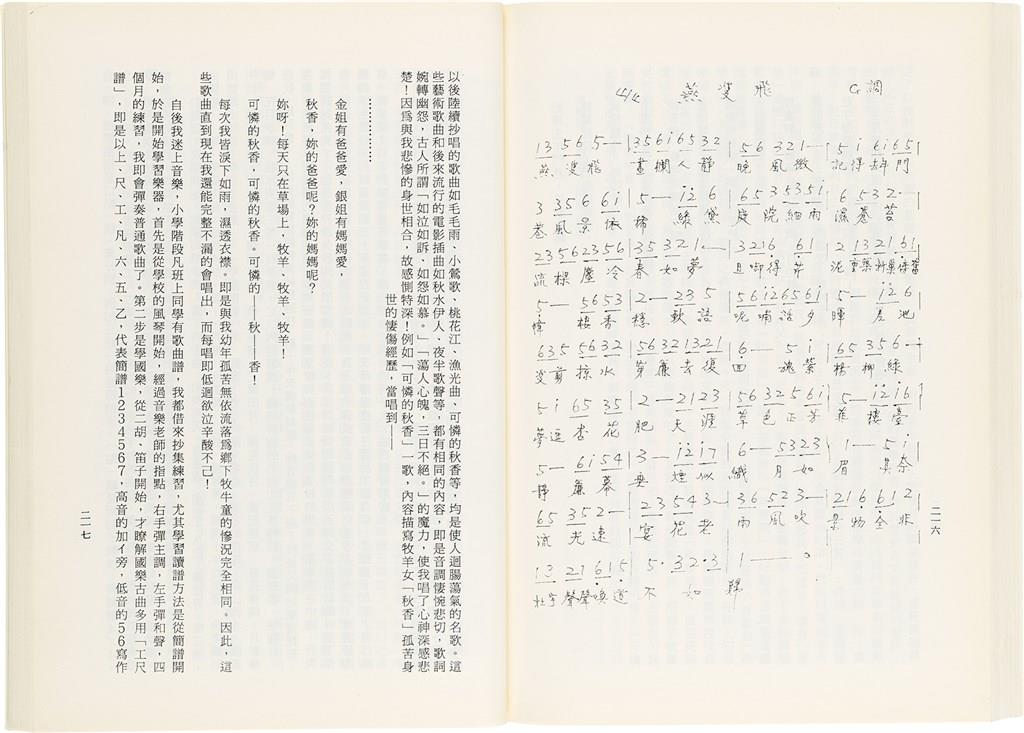 4/4 燕雙飛 G調
13 56 5— | 3561 6532 | 56 321— | 51 6165 |
燕 雙飛 畫欄人靜 晚 風微 記得 門
3 356 61 | 5— 12 6 | 653 5351 | 6532—
巷風景依 稀 綠 庭院細雨 濕蒼苔
2356 2356 | 35 321— | 3216 61 | 21 1321 61
流樑塵冷 春如夢 且啣得芹 泥重築新巢
5— 5653 | 2— 23 5 | 56 126561 | 5— 12 6
幃 棲香 穩 軟語 呢喃話夕 暉 差池
635 5632 | 5632 1321 | 6— 51 | 65 356—
雙剪掠水 穿簾去復 回 魂縈 楊柳綠
51 65 35 | 2— 21 23 | 56 3256 1 | 5— 12 16
夢逗杏花 肥 天涯 草色正芳 菲 樓臺
5— 6154 | 3— 12 17 | 6— 5323 | 1— 51
靜 簾幕 垂 煙似 織 月如 眉 其奈
65 352— | 23 543— | 36 523— | 216 612
流光速 花老 雨風吹 景物全非
13 21 615 | 5·32·3 | 1——0
杜宇聲聲喚道 不如歸
二一六
以後陸續抄唱的歌曲如毛毛雨、小鶯歌、桃花江、漁光曲、可憐的秋香等，均是使人迴腸蕩氣的名歌。這
些藝術歌曲和後來流行的電影插曲如秋水伊人、夜半歌聲等，都有相同的內容，即是音調悽惋悲切，歌詞
婉轉幽怨，古人所謂「如泣如訴、如怨如慕。」「蕩人心魄，三日不絕。」的魔力，使我唱了心神深感悲
楚！因為與我悲慘的身世相合，故感惻特深！例如「可憐的秋香」一歌，內容描寫牧羊女「秋香」孤苦身
世的悽傷經歷，當唱到——
……………
金姐有爸爸愛，銀姐有媽媽愛，
秋香，妳的爸爸呢？妳的媽媽呢？
妳呀！每天只在草場上，牧羊、牧羊、牧羊！
可憐的秋香，可憐的秋香。可憐的——秋——香！
每次我皆淚下如雨，濕透衣襟。即是與我幼年孤苦無依流落為鄉下牧牛童的慘況完全相同。因此，這
些歌曲直到現在我還能完整不漏的會唱出，而每唱即低迴欲泣辛酸不已！
自後我迷上音樂，小學階段凡班上同學有歌曲譜，我都借來抄集練習，尤其學習讀譜方法是從簡譜開
始，於是開始學習樂器，首先是從學校的風琴開始，經過音樂老師的指點，右手彈主調，左手彈和聲，四
個月的練習，我即會彈奏普通歌曲了。第二步是學國樂，從二胡、笛子開始，才瞭解國樂古曲多用「工尺
譜」，即是以上、尺、工、凡、六、五、乙，代表簡譜1234567，高音的加イ旁，低音的56寫作
二一七